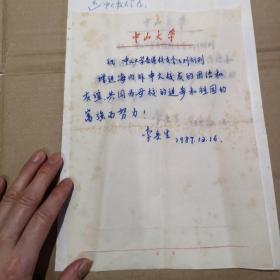 中山大学
祝 中山大学香港校友会会刊创刊
增进海内外中大校友的团结和
友谊，共同为母校的进步和祖国的
富强而努力！
李岳生
1987.12.16.